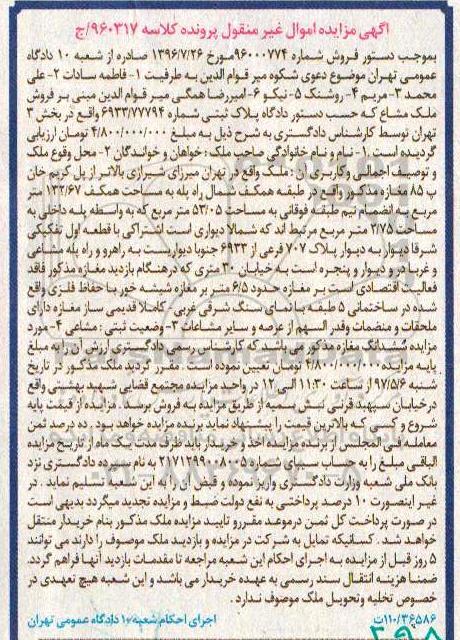 آگهی مزایده اموال غیر منقول پرونده کلاسه ۹۶۰۳۱۷/ج
بموجب دستور فروش شماره ۹۶۰۰۰۷۷۴مورخ ۱۳۹۶/۷/۲۶ صادره از شعبه ۱۰ دادگاه
عمومی تهران موضوع دعوی شکوه میر قوام الدین به طرفیت ۱- فاطمه سادات ۲-علی
محمد ۳- مریم ۴- روشنک ۵- نیکو ۶- امیررضا همگی میر قوام الدین مبنی بر فروش
ملک مشاع که حسب دستور دادگاه پلاک ثبتی شماره ۶۹۳۳/۷۷۷۹۴ واقع در بخش ۳
تهران توسط کارشناس دادگستری به شرح ذیل به مبلغ ۴/۸۰۰/۰۰۰/۰۰۰ تومان ارزیابی
گردیده است. ۱- نام و نام خانوادگی صاحب ملک: خواهان و خواندگان ۲- محل وقوع ملک
و توصیف اجمالی و کاربری آن: ملک واقع در تهران میرزای شیرازی بالاتر از پل کریم خان
پ ۸۵ مغازه مذکور واقع در طبقه همکف شمال راه پله به مساحت همکف ۱۳۲/۶۷ متر
مربع به انضمام نیم طبقه فوقانی به مساحت ۵۳/۰۵ متر مربع که به واسطه پله داخلی به
مساحت ۲/۷۵ متر مربع مرتبط اند که شمالا دیواری است اشتراکی با قطعه اول تفکیکی
شرقا دیوار به دیوار پلاک ۷۰۷ فرعی از ۶۹۳۳ جنوبا دیواریست به راهرو و راه پله مشاعی
و غربا در و دیوار و پنجره است به خیابان ۳۰ متری که درهنگام بازدید مغازه مذکور فاقد
فعالیت اقتصادی است بر مغازه حدود ۶/۵ متر بر مغازه شیشه خور با حفاظ فلزی واقع
شده در ساختمانی ۵ طبقه با نمای سنگ شرقی غربی- کاملا قدیمی ساز مغازه دارای
ملحقات و منضمات وقدر السهم از عرصه و سایر مشاعات ۳- وضعیت ثبتی: مشاعی ۴- مورد
مزایده ششدانگ مغازه مذکور می باشد که کارشناس رسمی دادگستری ارزش آن را به مبلغ
پایه مزایده ۴/۸۰۰/۰۰۰/۰۰۰ تومان تعیین نموده است. مقرر گردید ملک مذکور در تاریخ
شنبه ۹۷/۵/۶ از ساعت ۱۱:۳۰ الی ۱۲ در واحد مزایده مجتمع قضایی شهید بهشتی واقع
درخیابان سپهبد قرنی نبش سمیه از طریق مزایده به فروش برسد. مزایده از قیمت پایه
شروع و کسی که بالاترین قیمت را پیشنهاد نماید برنده مزایده خواهد بود. ده درصد ثمن
معامله فی المجلس از برنده مزایده اخذ و خریدار باید ظرف مدت یک ماه از تاریخ مزایده
الباقی مبلغ را به حساب سیبای شماره به نام سپرده دادگستری نزد
بانک ملی شعبه وزارت دادگستری واریز نموده و قبض آن را به این شعبه تسلیم نماید. در
غیر اینصورت ۱۰ درصد پرداختی به نفع دولت ضبط و مزایده تجدید میگردد بدیهی است
در صورت پرداخت کل ثمن درموعد مقررو تایید مزایده ملک مذکور بنام خریدار منتقل
خواهد شد. کسانیکه تمایل به شرکت در مزایده و بازدید ملک موصوف را دارند می توانند
۵ روز قبل از مزایده به اجرای احکام این شعبه مراجعه تا مقدمات بازدید آنها فراهم گردد.
ضمنا هزینه انتقال سند رسمی به عهده خریدار می باشد و این شعبه هیچ تعهدی در
خصوص تخلیه وتحویل ملک موصوف ندارد.
۱۱۰/۳۶۵۸۶ت اجرای احکام شعبه ۱۰ دادگاه عمومی تهران